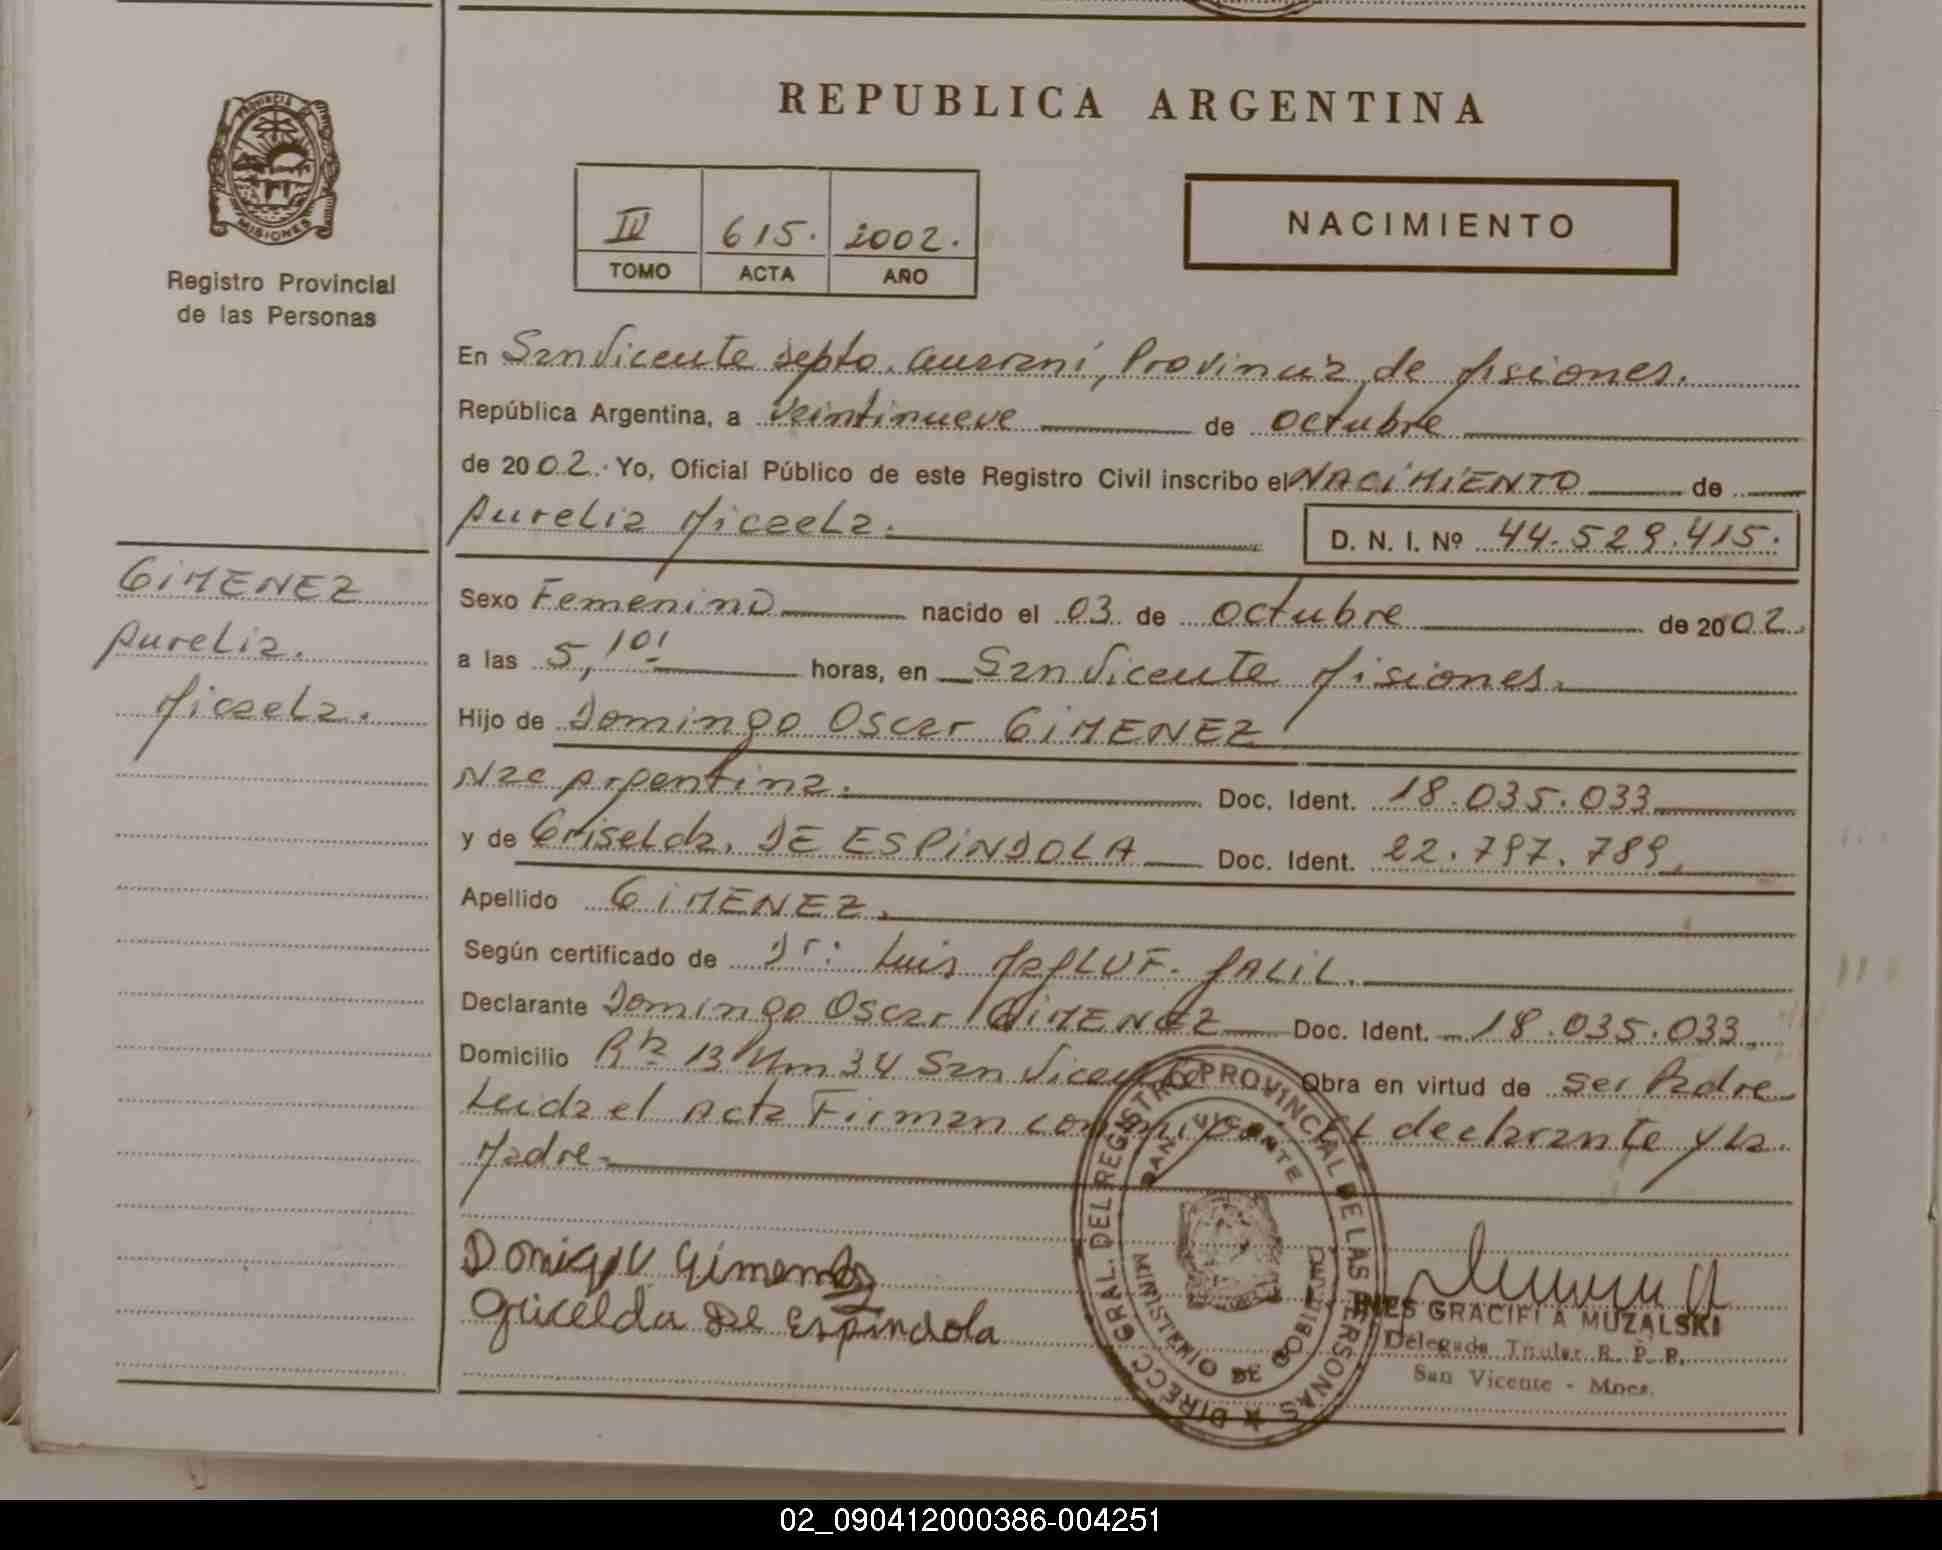 PROVINCIA DE
MISIONES
Registro Provincial
de las Personas
GIMENEZ
Aurelia.
Micaela.
REPUBLICA ARGENTINA
III 615. 2002.
TOMO ACTA AÑO
NACIMIENTO
En San Vicente Depto. Guaraní, Provincia de Misiones.
República Argentina, a veintinueve de octubre
de 2002. Yo, Oficial Público de este Registro Civil inscribo el NACIMIENTO de
Aurelia Micaela.
D. N. I. Nº 44.529.415.
Sexo Femenino nacido el 03 de octubre de 2002.
a las 5,10! horas, en San Vicente Misiones.
Hijo de Domingo Oscar GIMENEZ
Nac Argentina. Doc. Ident. 18.035.033
y de Griselda. DE ESPINDOLA Doc. Ident. 22.797.789.
Apellido GIMENEZ.
Según certificado de Dr: Luis JALIL.
Declarante Domingo Oscar GIMENEZ Doc. Ident. 18.035.033.
Domicilio Rta 13 Km 34 San Vicente Obra en virtud de ser Padre
Leida el Acta Firman conmigo. El declarante y la.
Madre-
Domigo Gimenez
Gricelda De Espindola
DIRECC. GRAL. DEL REGISTRO PROVINCIAL DE LAS PERSONAS
SAN VICENTE
MINISTERIO DE GOBIERNO
INES GRACIELA MUZALSKI
Delegada Titular R. P. P.
San Vicente - Mnes.
02_090412000386-004251